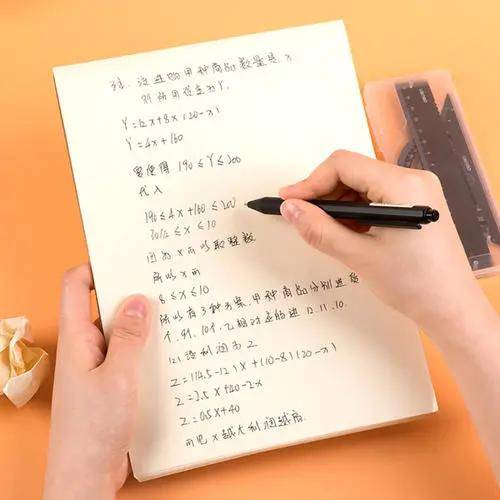 解: 设进购甲种商品数量是 x
则所用资金为Y.
Y=12x+8x(20-x)
Y=4x+160
要使得 190≤Y≤200
代入
190≤4x+160≤200
30/4≤x≤10
因为 x 可以取整数
所以 x 可
8≤x≤10
所以有3种方案,甲种商品分别进
个,9个,10个,乙相对应的进 12.11.10.
(2) 设利润为 Z
Z=(14.5-12)x+(10-8)(20-x)
Z=2.5x+40-2x
Z=0.5x+40
可见 x 越大利润越高.